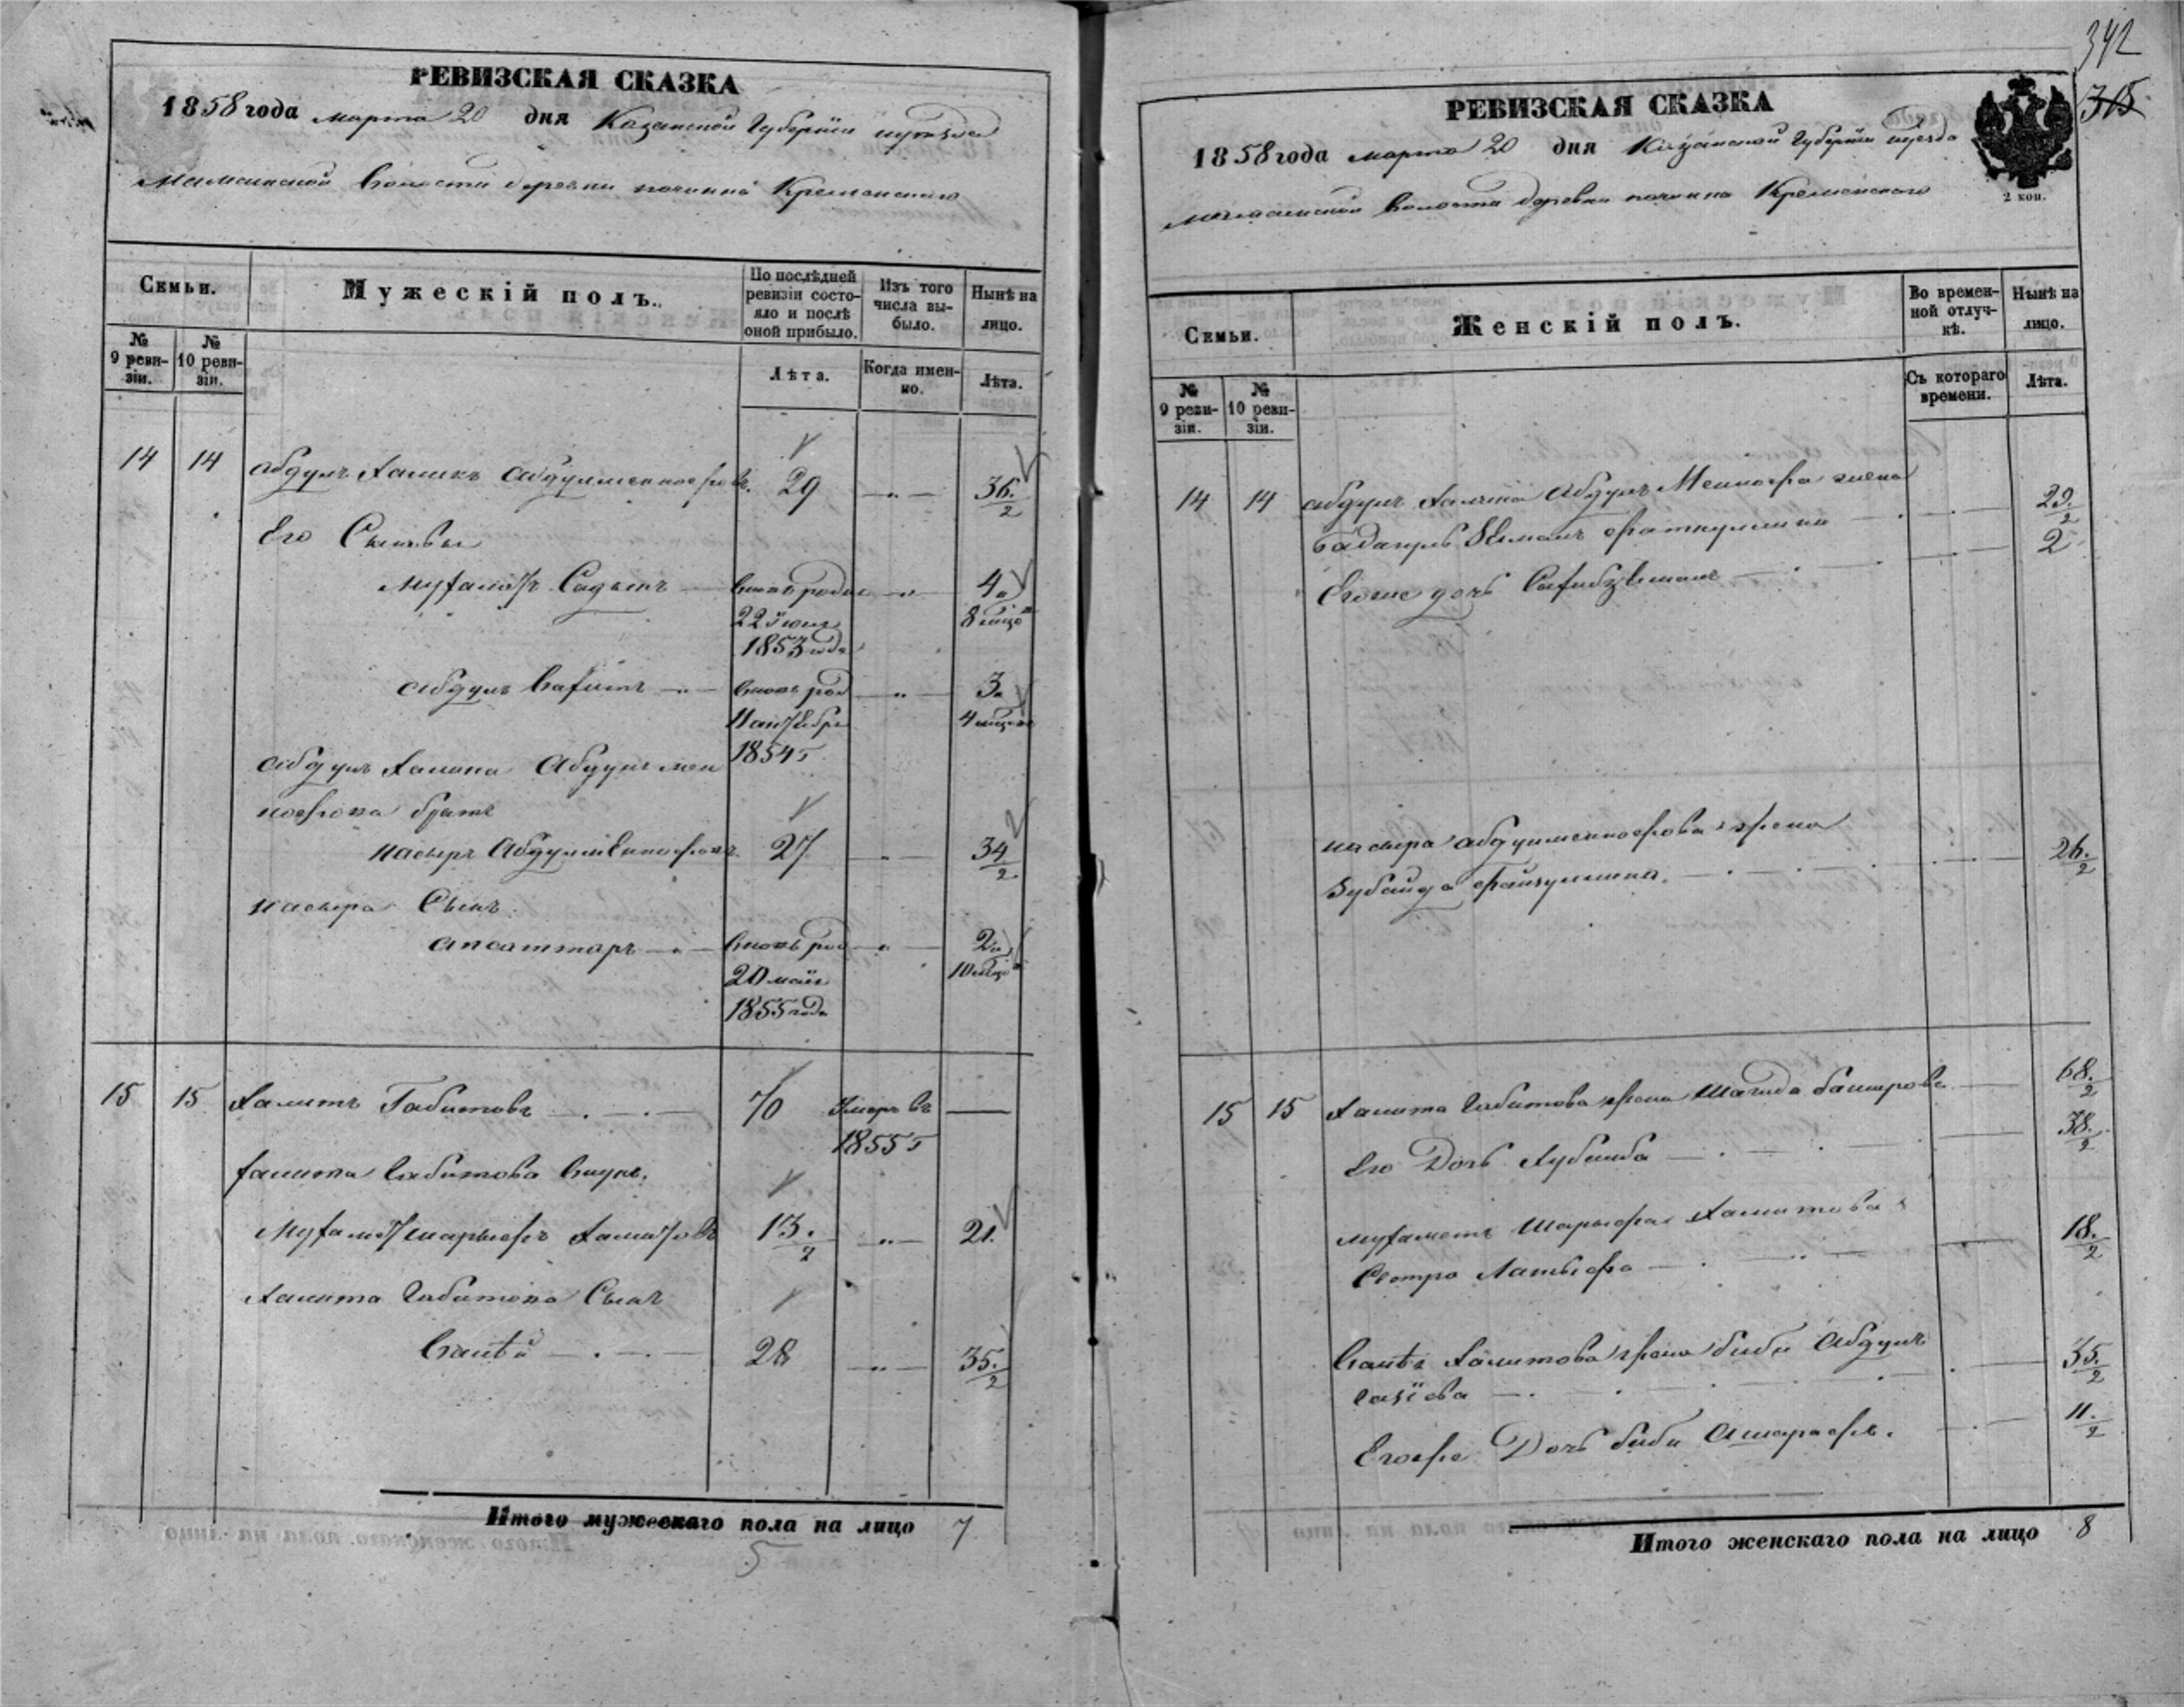 РЕВИЗСКАЯ СКАЗКА
1858 года марта 20 дня Казанской Губерніи уезда
волости деревни починка Кременскаго
Семьи.
Мужескій полъ.
По послѣдней ревизіи состояло и послѣ оной прибыло.
Изъ того числа выбыло.
Нынѣ на лицо.
№ 9 ревизіи.
№ 10 ревизіи.
Лѣта.
Когда именно.
Лѣта.
14 14 Абдулъ Халикъ Абдулменнофовъ. 29 — „ — 36. 1/2
Его Сыновья
Мухаметъ Садыкъ — вновь родил — „ — 4
22 іюля 8 месяц
1853 года
Абдулъ Вахитъ — „ — вновь род — „ — 3
11 ноября 4 месяц
1854 г
Абдулъ Халика Абдулмен
нофова братъ
Насыръ Абдулменнофовъ 27 — „ — 34 1/2
Насыра Сынъ
Апсаттаръ — „ — вновь род — „ — 2
20 маія 10 месяц
1855 года
15 15 Хамитъ Габитовъ — . — . — 70 Умеръ въ —
1855 г
Хамита Габитова внукъ.
Мухаметшарыфъ Хамитовъ 13. 1/2 — „ — 21.
Хамита Габитова Сынъ
28 — „ — 35. 1/2
Итого мужескаго пола на лицо 7
5
342
315
РЕВИЗСКАЯ СКАЗКА
1858 года марта 20 дня Казанской Губерніи уезда
2 коп.
волости деревни починка Кременскаго
Семьи.
Женскій полъ.
Во временной отлучкѣ.
Нынѣ на лицо.
№ 9 ревизіи.
№ 10 ревизіи.
Съ котораго времени.
Лѣта.
14 14 Абдулъ Халика Абдулъ Меннофа жена
Фаткуллина 29. 1/2
Его же дочь 2
Насыра Абдулменнофова жена
Зубайда Файзуллина. 26. 1/2
15 15 Хамита Габитова жена Шагида Баширова 68. 1/2
Его Дочь Хубайба 38. 1/2
Мухаметъ Шарыфа Хамитова
Сестра Латыфа 18. 1/2
Хамитова жена биби Абдулъ
газіева 35. 1/2
Его же Дочь биби Ашрафъ. 11. 1/2
Итого женскаго пола на лицо 8